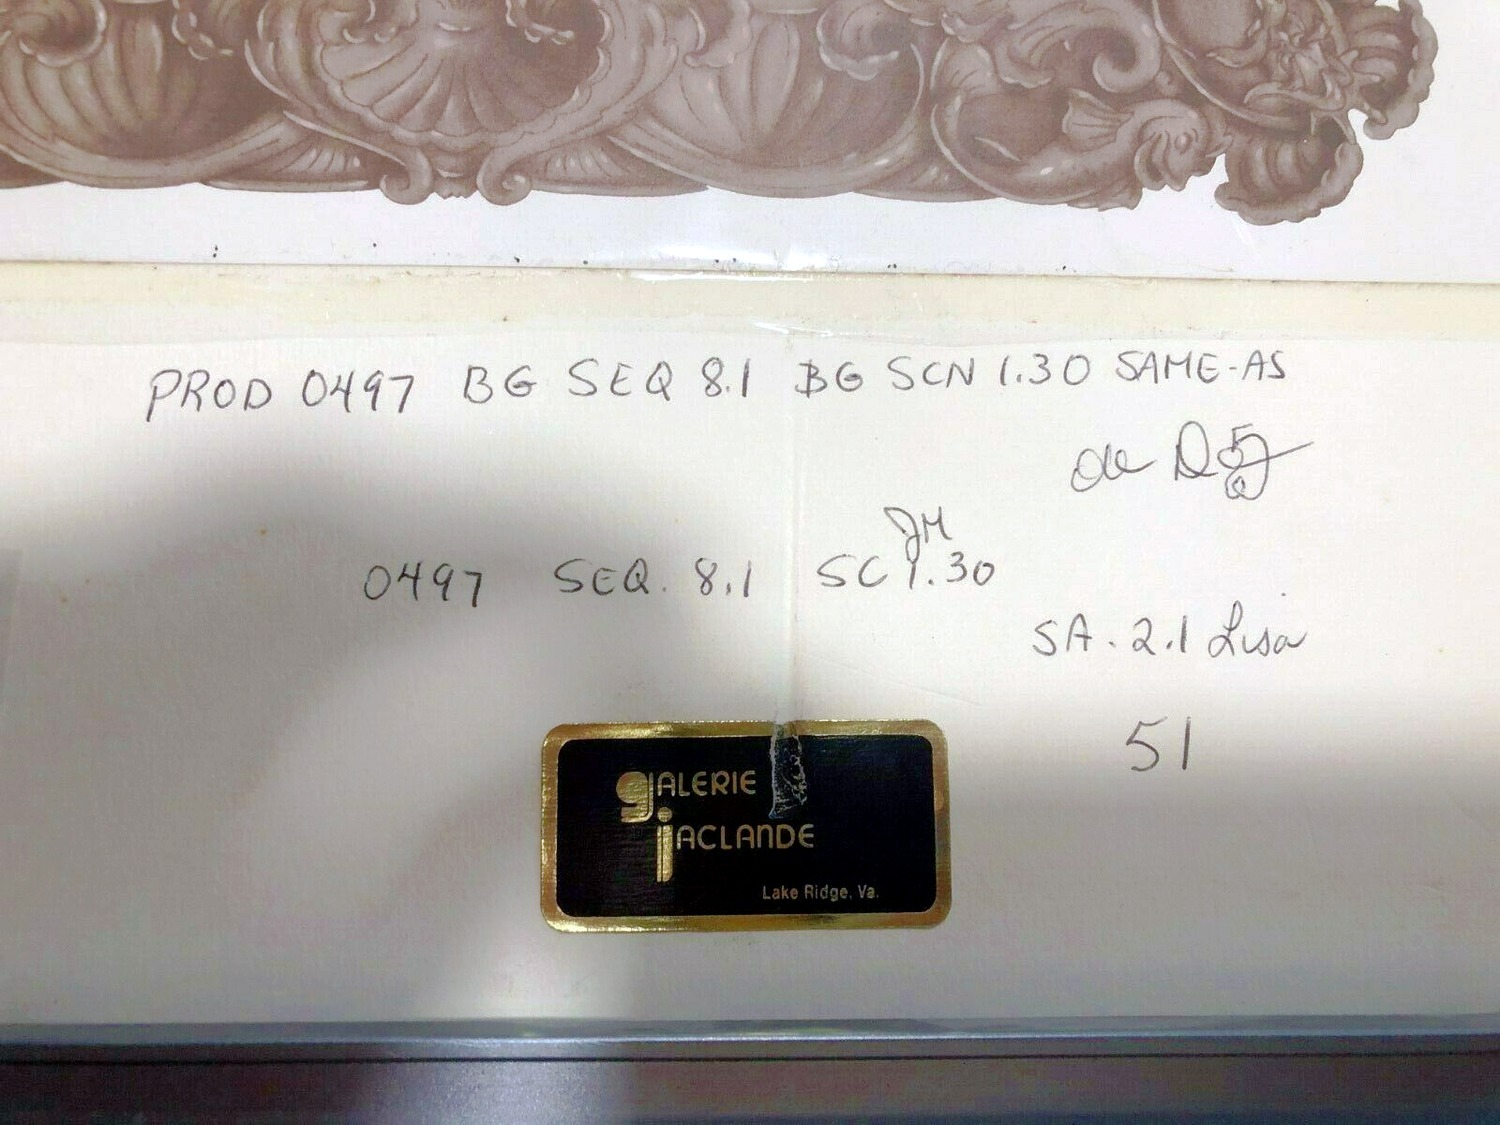 PROD 0497 BG SEQ 8.1 BG SCN 1.30 SAME-AS
JM
0497 SEQ. 8.1 SC 1.30
SA. 2.1 Lisa
51
GALERIE
JACLANDE
Lake Ridge, Va.